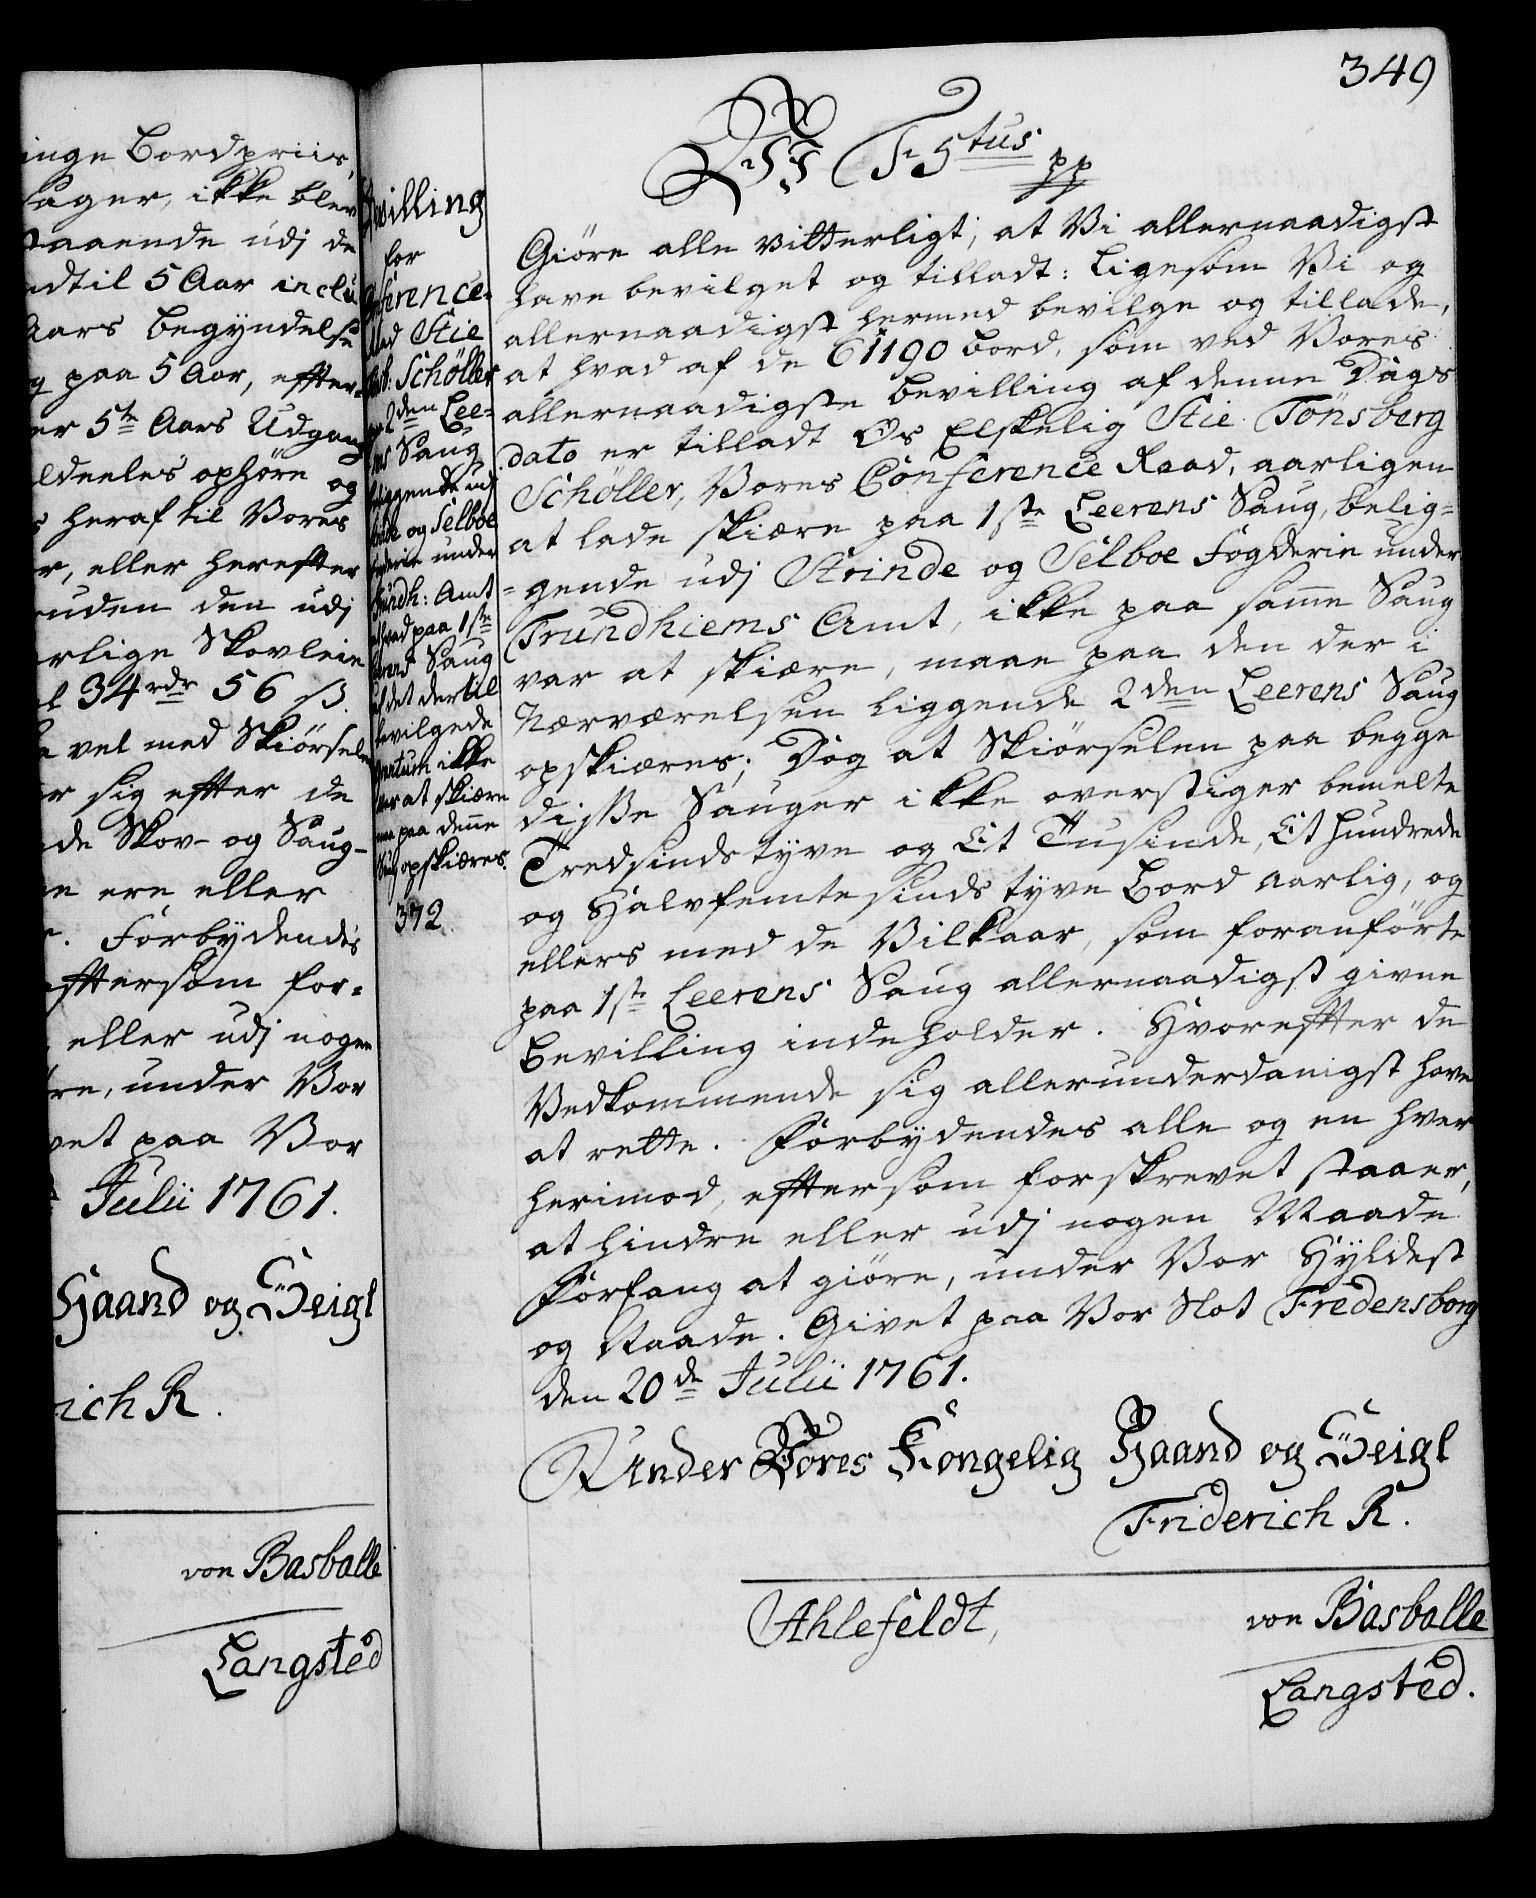 inge Bordpriis,
Sager, ikke blev
staaende udj de
indtil 5 Aar inclu
Aars Begyndelse
og paa 5 Aar, efter-
er 5te Aars Udgang
ldeeles ophöre og
s heraf til Vores
r, eller herefter
uden den udj
rlige Skovleie
l 34 rdr 56 ß.
vel med Skiörsele
r sig efter de
de Skov- og Saug-
ere eller
Forbydendes
eftersom for-
eller udj nogen
re, under Vor
vet paa Vor
Julii 1761.
Haand og Seigl
rich R.
von Basballe
Langsted
Bevilling
for
Conference-
Raad Stie
Tönsb. Schöller
2den Lee-
rens Saug
beliggende udj
Strinde og Selboe
Fogderie under
Trundh: Amt
hvad paa 1ste
Leerens Saug
af det dertil
bevilgede
Qvantum ikke
var at skiære
maa paa denne
Saug opskiæres.
372.
349
Vi Fr 5tus pp
Giöre alle vitterligt, at Vi allernaadigst
have bevilget og tilladt: Ligesom Vi og
allernaadigst hermed bevilge og tillade,
at hvad af de 61190 Bord, som ved Vores
allernaadigste Bevilling af denne Dags
dato er tilladt Os Elskelig Stie Tönsberg
Schöller, Vores Conference Raad, aarligen
at lade skiære paa 1ste Leerens Saug, belig-
-gende udj Strinde og Selboe Fogderie under
Trundhiems Amt, ikke paa samme Saug
var at skiære, maae paa den der i
Nærværelsen liggende 2den Leerens Saug
opskiæres; Dog at Skiörselen paa begge
disse Sauger ikke overstiger bemelte
Tredsindstyve og Et Tusinde, Et hundrede
og Halvfemtesindstyve Bord aarlig, og
ellers med de Vilkaar, som foranförte
paa 1ste Leerens Saug allernaadigst givne
Bevilling indeholder. Hvorefter de
Vedkommende sig allerunderdanigst have
at rette. Forbydendes alle og en hver
herimod, eftersom forskrevet staaer,
at hindre eller udj nogen Maade
Forfang at giöre, under Vor Hyldest
og Naade. Givet paa Vor Slot Fredensborg
den 20de Julii 1761.
Under Vores Kongelig Haand og Seigl
Friderich R.
Ahlefeldt,
von Basballe
Langsted.